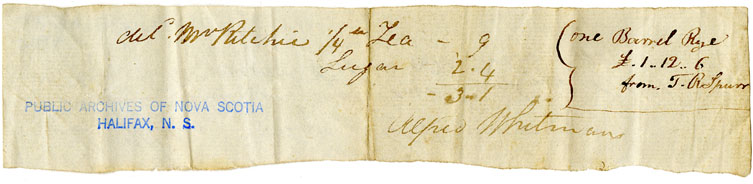 del. Mr Ritchie 1/4 lb Tea - 9
Sugar 2.4
- 3-1
Alfred Whitman
one Barrel Rye
£.1..12..6
from T. R. Spurr
PUBLIC ARCHIVES OF NOVA SCOTIA
HALIFAX, N. S.